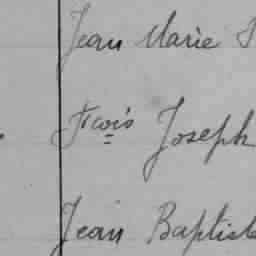 Jean Marie
Frcois Joseph
Jean Baptist